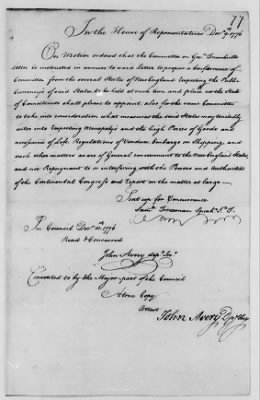 77
In the House of Representatives Decr. 9. 1776
On Motion ordered that the Committee on Govr. Trumbull's
letter is instructed in answer to said Letter to propose a Conference of
Committees from the several States of New England respecting the Publick
Currencys of said States to be held at such time and place as the State
of Connecticut shall please to appoint, also for the same Committee
to take into consideration what measures the said States may
enter into respecting Monopolys and the high Prices of Goods and
necessarys of Life, Regulations of Vendues, Embargo on Shipping, and
such other matters as are of General concernment to the New England States,
and not Repugnant to or interfering with the Powers and Authorities
of the Continental Congress and report in the matter at large —
Sent up for Concurrence
Saml. Freeman Speakr. P. T.
In Council Decr. 10. 1776
Read & Concurred
John Avery Dpy. Secy.
Consented to by the Major part of the Council
A true Copy
Attest
John Avery Dpy Secy